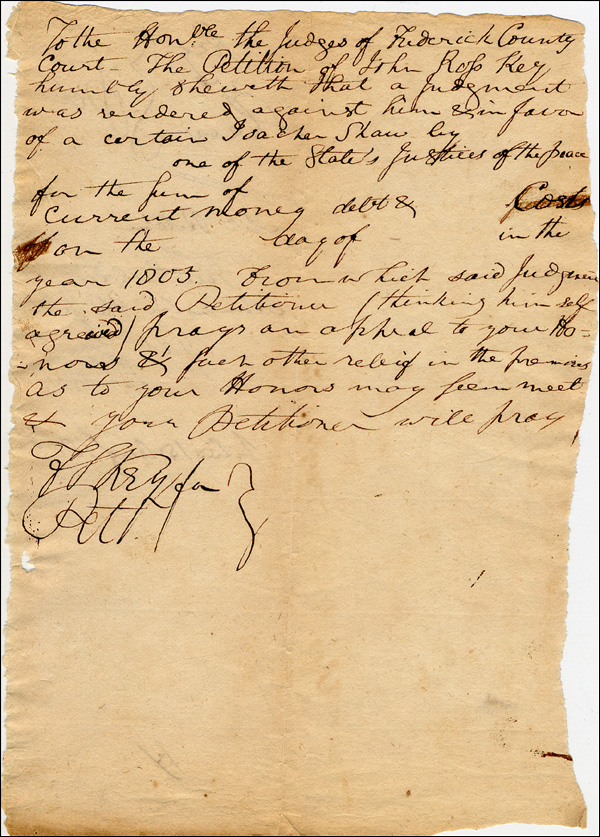 To the Hon.ble the Judges of Frederick County
Court The Petition of John Ross Key
humbly sheweth that a Judgment
was rendered against him & in favor
of a certain Isacher Shaw by
one of the State's Justices of the peace
for the Sum of
current money debt & Costs
on the day of in the
year 1805. From which said Judgment
the said Petitioner (thinking himself
agreived) prays an appeal to your Ho=
=nors & such other releif in the premises
as to your Honors may seem meet
& your Petitioner will pray
F S Key for
Pet.r